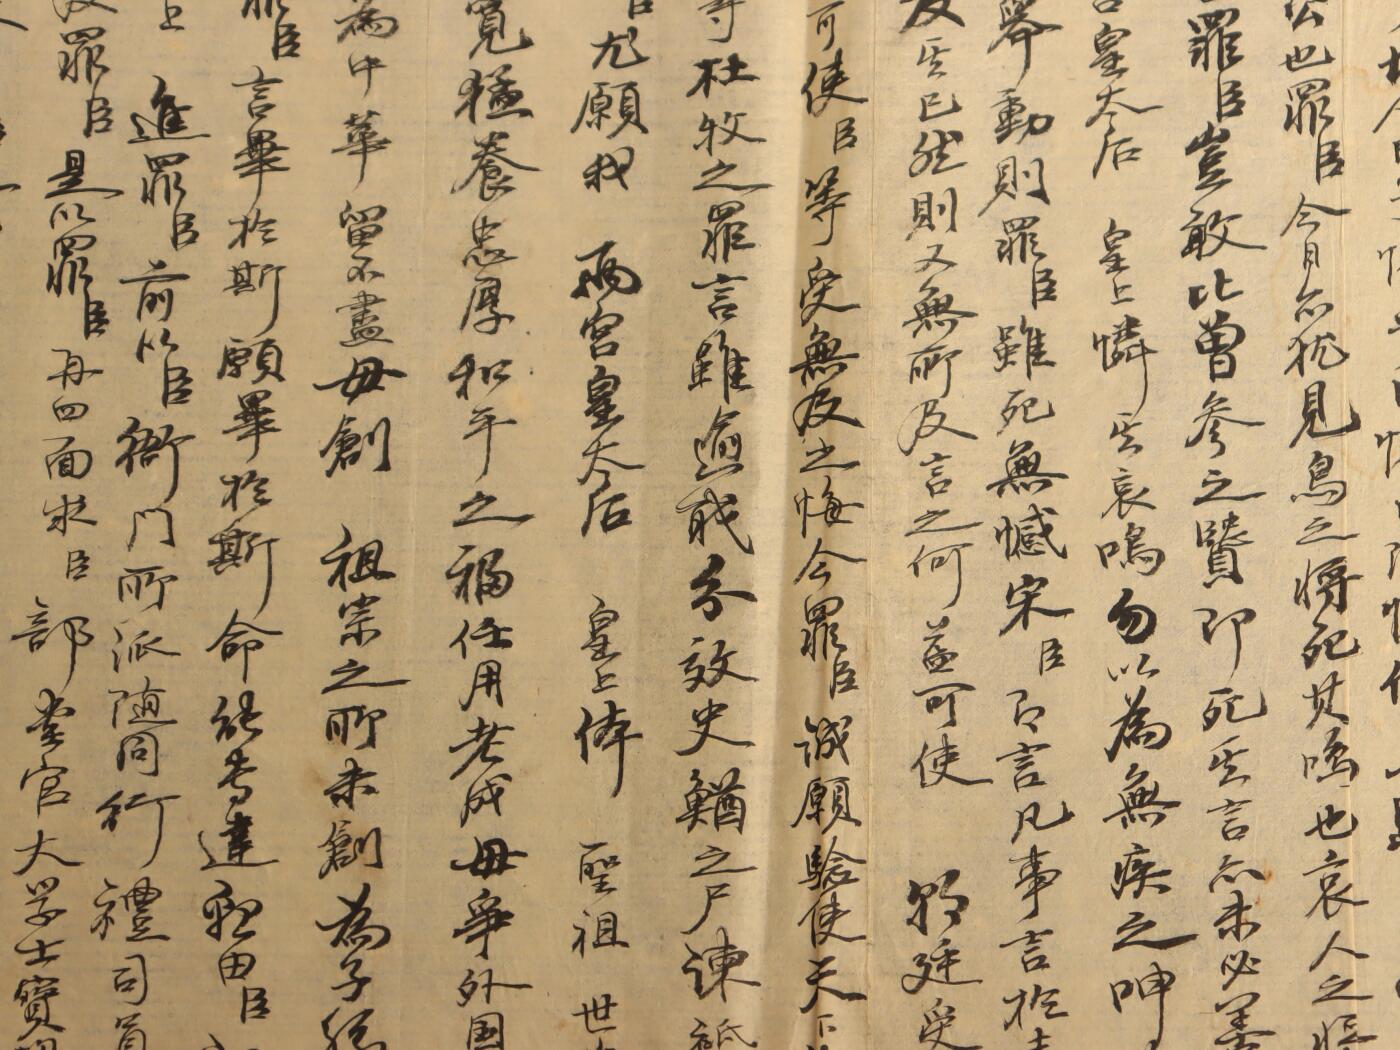 公也罪臣今日亦猶見鳥之將死其鳴也哀人之臨
罪臣豈敢比曾參之賢即死其言亦未必善
皇太后 皇上憐其哀鳴勿以為無疾之呻
舉動則罪臣雖死無憾宋臣有言凡事言於未
及其已然則又無所及言之何益可使 朝廷受
可使臣等受無及之悔今罪臣誠願驗使天下
等杜牧之罪言雖逾職分效史鰌之尸諫祗
尤願我 兩宮皇太后 皇上体 聖祖 世
寬猛養忠厚和平之福任用老成毋爭外国
為中華留不盡毋創 祖宗之所未創為子孫
罪臣言畢於斯願畢於斯命能專達冤由臣
上 進罪臣前以臣衙门所派隨同行禮司員
罪臣是以罪臣再四面求臣部堂官大学士寶